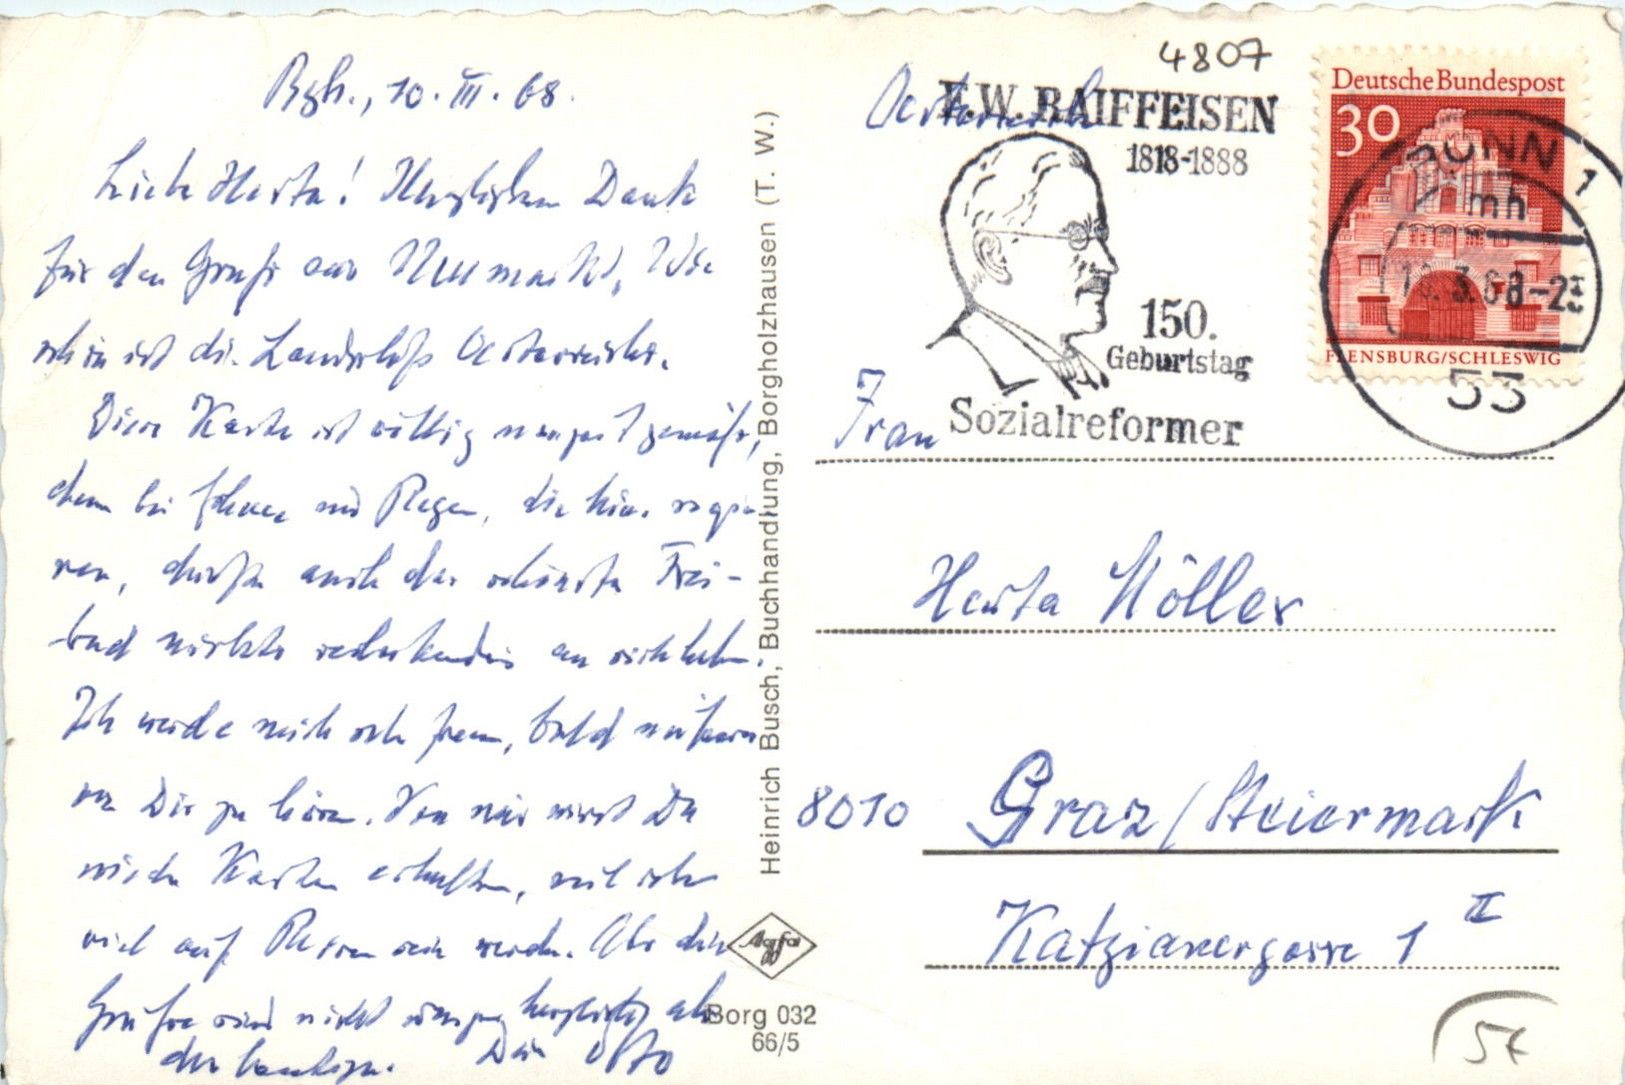 Bgh., 10. III. 68.
Liebe Herta! Herzlichen Dank
für den Gruß aus Neumarkt. Wie
schön ist die Landschaft Österreichs.
Diese Karte ist völlig unzeitgemäß,
denn bei Schnee und Regen, die hier regie-
ren, dürfte auch das schönste Frei-
bad nichts verlockendes an sich haben.
Ich werde mich sehr freuen, bald
von Dir zu hören. Von mir wirst Du
wieder Karten erhalten, weil ich
viel auf Reisen sein werde. Aber die
Grüße sind nicht weniger herzlich als
Dein Otto
Heinrich Busch, Buchhandlung, Borgholzhausen (T. W.)
Agfa
Borg 032
66/5
4807
Österreich
F.W. RAIFFEISEN
1818-1888
150.
Geburtstag
Sozialreformer
Deutsche Bundespost
30
FLENSBURG/SCHLESWIG
BONN 1
mh
3.68
53
Frau
Herta Möller
8010 Graz/Steiermark
Katzianergasse 1 II